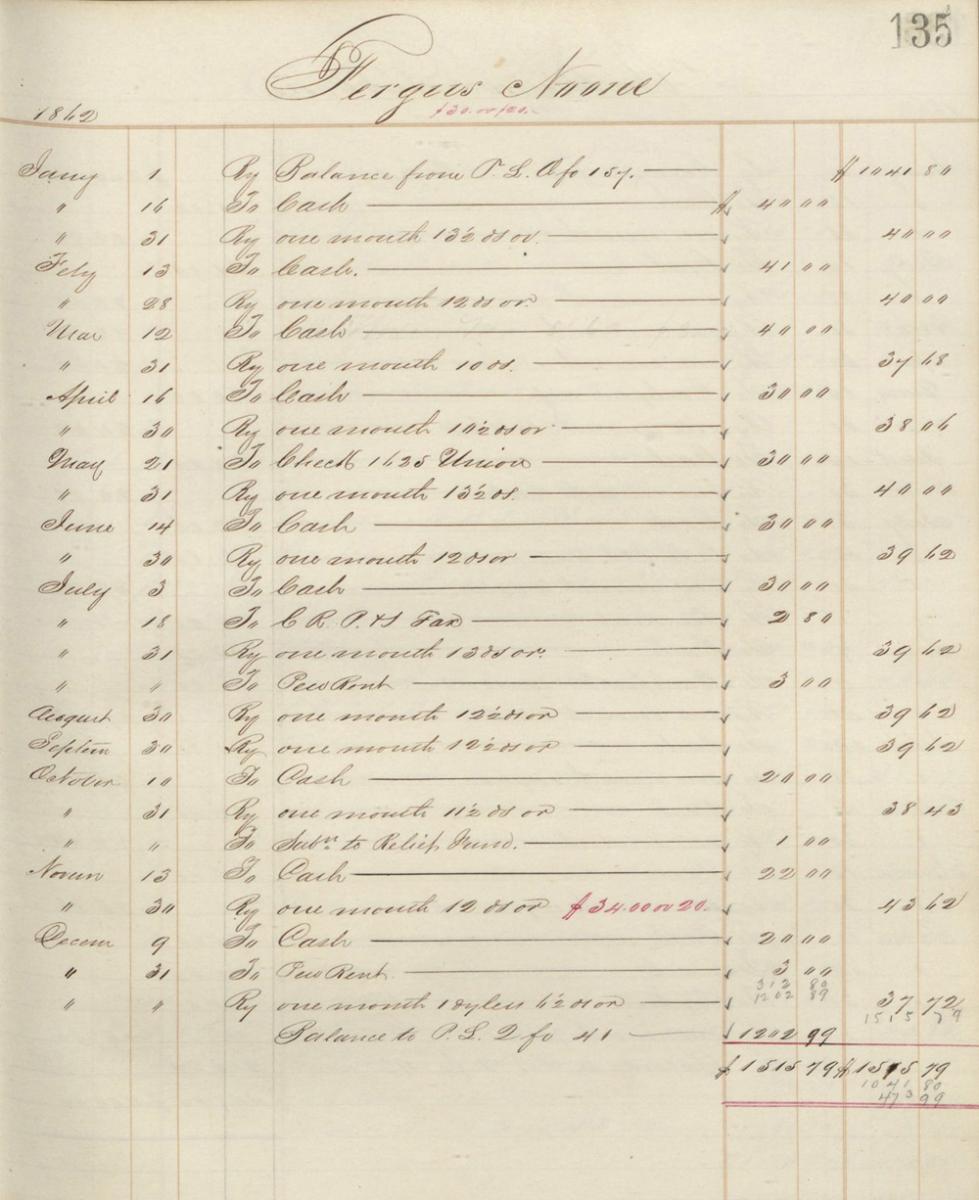 135
Fergus Noone
1862 $30.00/20.
Jany 1 By Balance from P. L. A fo 157. $1041 80
" 16 To Cash $40 00
" 31 By one month 13½ ds ov. 40 00
Feby 13 To Cash. 41 00
" 28 By one month 12 ds ov 40 00
Mar 12 To Cash 40 00
" 31 By one month 10 ds. 37 68
April 16 To Cash 30 00
" 30 By one month 10½ ds ov 38 06
May 21 To Check 1625 Union 30 00
" 31 By one month 13½ ds. 40 00
June 14 To Cash 30 00
" 30 By one month 12 ds ov 39 62
July 3 To Cash 30 00
" 18 To C R. P. & S Tax 2 80
" 31 By one month 13 ds ov. 39 62
" " To Pew Rent 3 00
August 30 By one month 12½ ds ov 39 62
Septem 30 By one month 12½ ds ov 39 62
October 10 To Cash 20 00
" 31 By one month 11½ ds ov 38 43
" " To Subn. to Relief Fund. 1 00
Novem 13 To Cash 22 00
" 30 By one month 12 ds ov $34.00 or 20. 43 62
Decem 9 To Cash 20 00
" 31 To Pew Rent 3 00
312 80
1202 89
" " By one month 1 dy less 6½ ds ov 37 72
1515 79
Balance to P. L. 2 fo 41 1202 99
$1515 79 $1515 79
1041 80
473 99